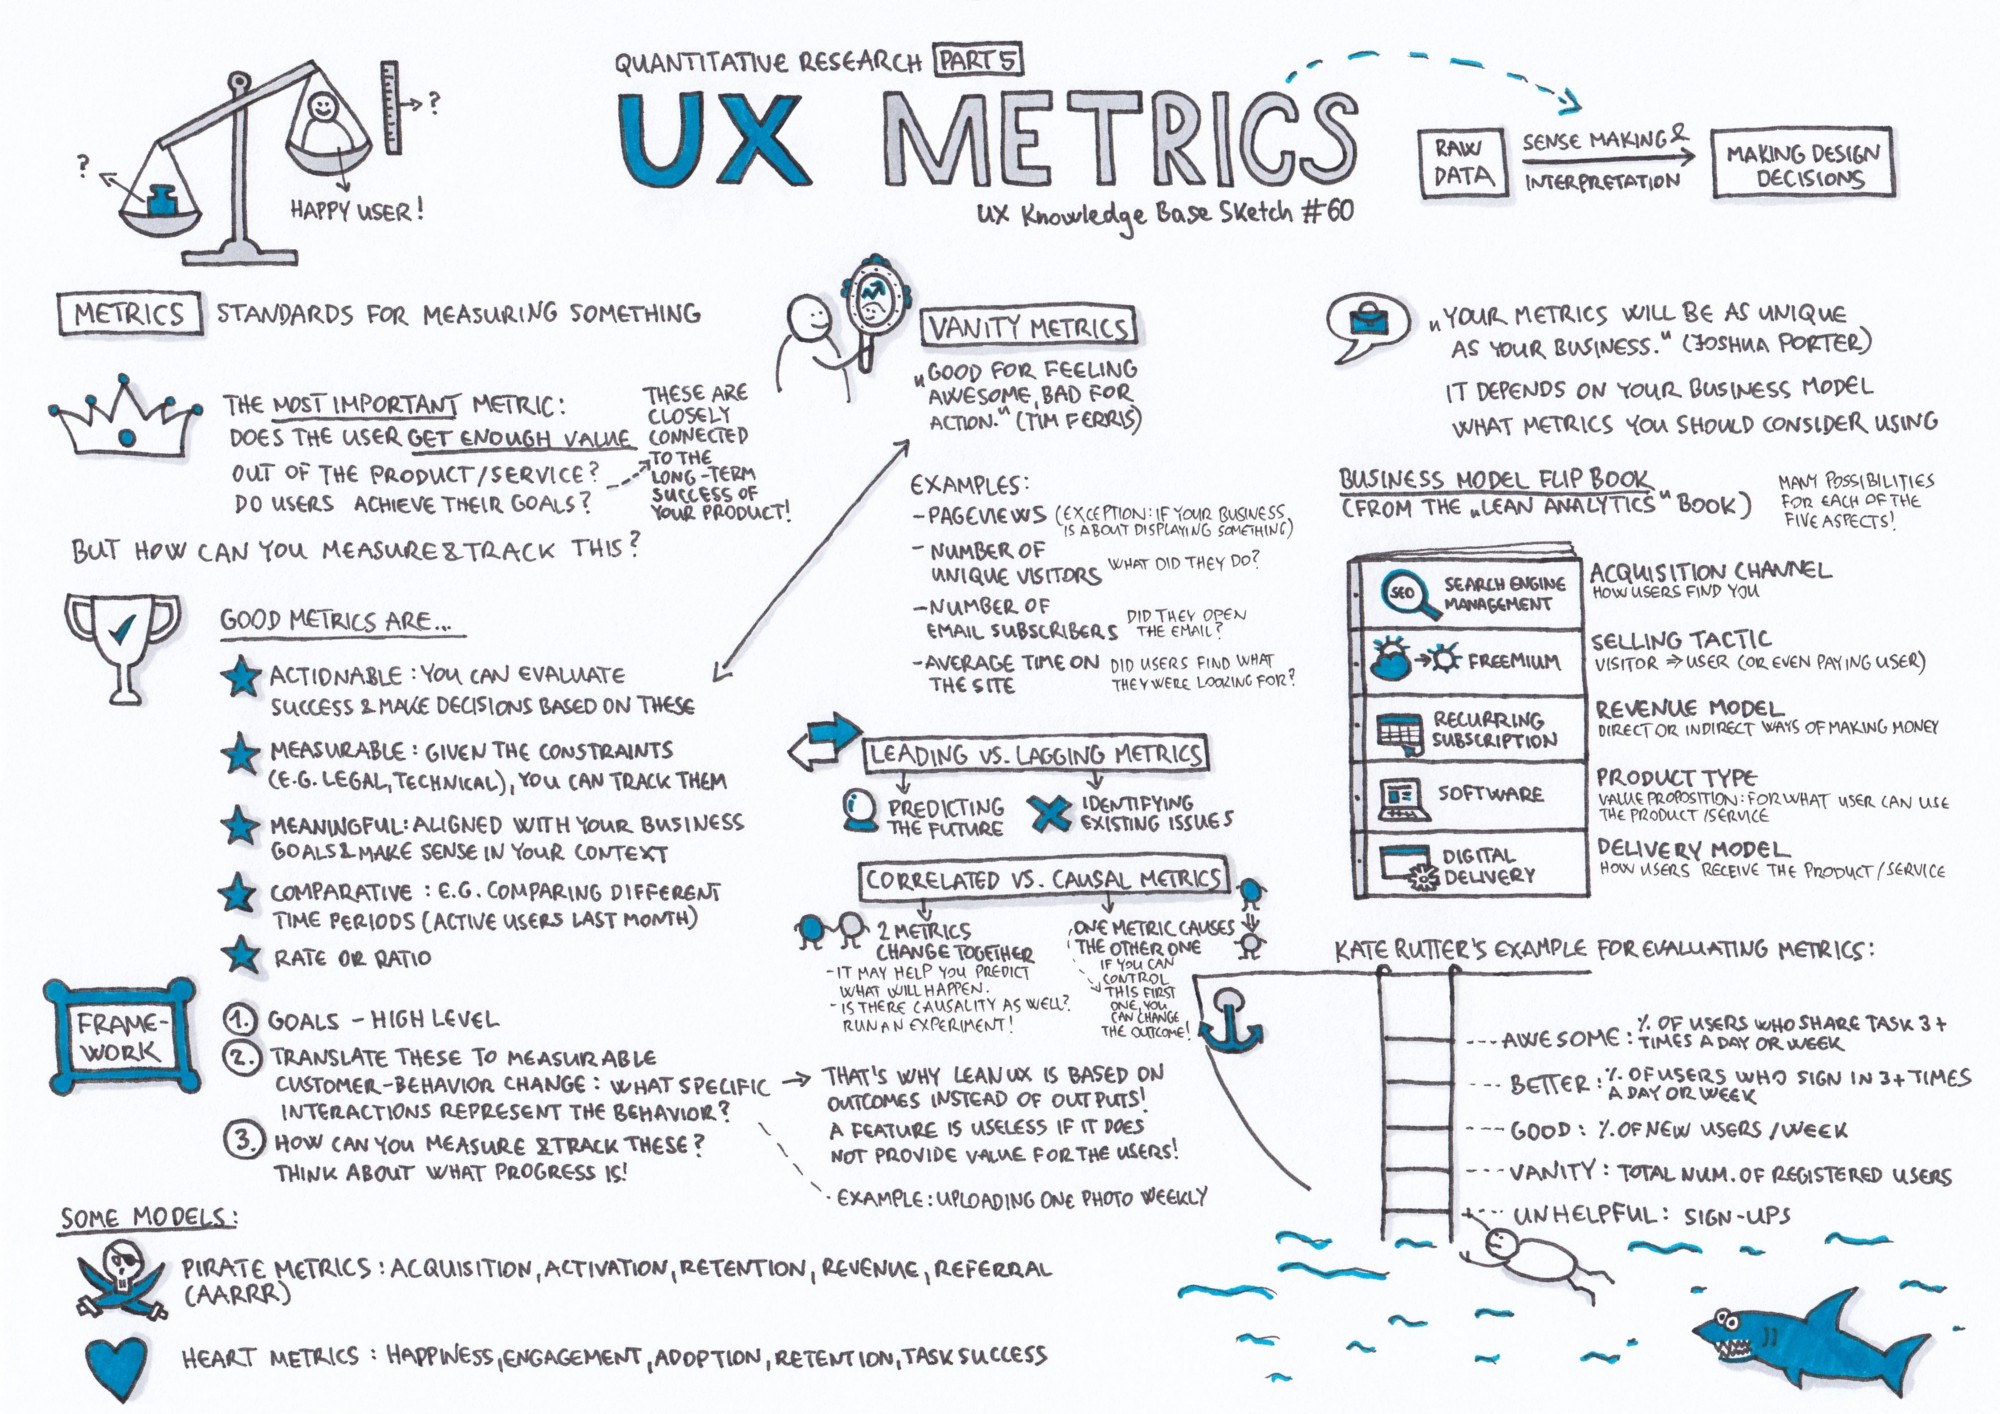 QUANTITATIVE RESEARCH PART 5
UX METRICS
UX Knowledge Base Sketch #60
?
?
HAPPY USER!
RAW
DATA
SENSE MAKING &
INTERPRETATION
MAKING DESIGN
DECISIONS
METRICS STANDARDS FOR MEASURING SOMETHING
THE MOST IMPORTANT METRIC:
DOES THE USER GET ENOUGH VALUE
OUT OF THE PRODUCT/SERVICE?
DO USERS ACHIEVE THEIR GOALS?
THESE ARE
CLOSELY
CONNECTED
TO THE
LONG-TERM
SUCCESS OF
YOUR PRODUCT!
BUT HOW CAN YOU MEASURE & TRACK THIS?
GOOD METRICS ARE...
ACTIONABLE: YOU CAN EVALUATE
SUCCESS & MAKE DECISIONS BASED ON THESE
MEASURABLE: GIVEN THE CONSTRAINTS
(E.G. LEGAL, TECHNICAL), YOU CAN TRACK THEM
MEANINGFUL: ALIGNED WITH YOUR BUSINESS
GOALS & MAKE SENSE IN YOUR CONTEXT
COMPARATIVE: E.G. COMPARING DIFFERENT
TIME PERIODS (ACTIVE USERS LAST MONTH)
RATE OR RATIO
FRAME-
WORK
1. GOALS - HIGH LEVEL
2. TRANSLATE THESE TO MEASURABLE
CUSTOMER-BEHAVIOR CHANGE: WHAT SPECIFIC
INTERACTIONS REPRESENT THE BEHAVIOR?
3. HOW CAN YOU MEASURE & TRACK THESE?
THINK ABOUT WHAT PROGRESS IS!
SOME MODELS:
PIRATE METRICS: ACQUISITION, ACTIVATION, RETENTION, REVENUE, REFERRAL
(AARRR)
HEART METRICS: HAPPINESS, ENGAGEMENT, ADOPTION, RETENTION, TASK SUCCESS
VANITY METRICS
„GOOD FOR FEELING
AWESOME, BAD FOR
ACTION." (TIM FERRIS)
EXAMPLES:
- PAGEVIEWS (EXCEPTION: IF YOUR BUSINESS
IS ABOUT DISPLAYING SOMETHING)
- NUMBER OF
UNIQUE VISITORS WHAT DID THEY DO?
- NUMBER OF
EMAIL SUBSCRIBERS DID THEY OPEN
THE EMAIL?
- AVERAGE TIME ON
THE SITE DID USERS FIND WHAT
THEY WERE LOOKING FOR?
LEADING VS. LAGGING METRICS
PREDICTING
THE FUTURE
IDENTIFYING
EXISTING ISSUES
CORRELATED VS. CAUSAL METRICS
2 METRICS
CHANGE TOGETHER
- IT MAY HELP YOU PREDICT
WHAT WILL HAPPEN.
- IS THERE CAUSALITY AS WELL?
RUN AN EXPERIMENT!
ONE METRIC CAUSES
THE OTHER ONE
IF YOU CAN
CONTROL
THIS FIRST
ONE, YOU
CAN CHANGE
THE OUTCOME!
THAT'S WHY LEAN UX IS BASED ON
OUTCOMES INSTEAD OF OUTPUTS!
A FEATURE IS USELESS IF IT DOES
NOT PROVIDE VALUE FOR THE USERS!
EXAMPLE: UPLOADING ONE PHOTO WEEKLY
„YOUR METRICS WILL BE AS UNIQUE
AS YOUR BUSINESS." (JOSHUA PORTER)
IT DEPENDS ON YOUR BUSINESS MODEL
WHAT METRICS YOU SHOULD CONSIDER USING
BUSINESS MODEL FLIP BOOK
(FROM THE „LEAN ANALYTICS" BOOK)
MANY POSSIBILITIES
FOR EACH OF THE
FIVE ASPECTS!
SEO
SEARCH ENGINE
MANAGEMENT
ACQUISITION CHANNEL
HOW USERS FIND YOU
FREEMIUM
SELLING TACTIC
VISITOR ⇒ USER (OR EVEN PAYING USER)
RECURRING
SUBSCRIPTION
REVENUE MODEL
DIRECT OR INDIRECT WAYS OF MAKING MONEY
SOFTWARE
PRODUCT TYPE
VALUE PROPOSITION: FOR WHAT USER CAN USE
THE PRODUCT/SERVICE
DIGITAL
DELIVERY
DELIVERY MODEL
HOW USERS RECEIVE THE PRODUCT/SERVICE
KATE RUTTER'S EXAMPLE FOR EVALUATING METRICS:
AWESOME: % OF USERS WHO SHARE TASK 3+
TIMES A DAY OR WEEK
BETTER: % OF USERS WHO SIGN IN 3+ TIMES
A DAY OR WEEK
GOOD: % OF NEW USERS/WEEK
VANITY: TOTAL NUM. OF REGISTERED USERS
UNHELPFUL: SIGN-UPS